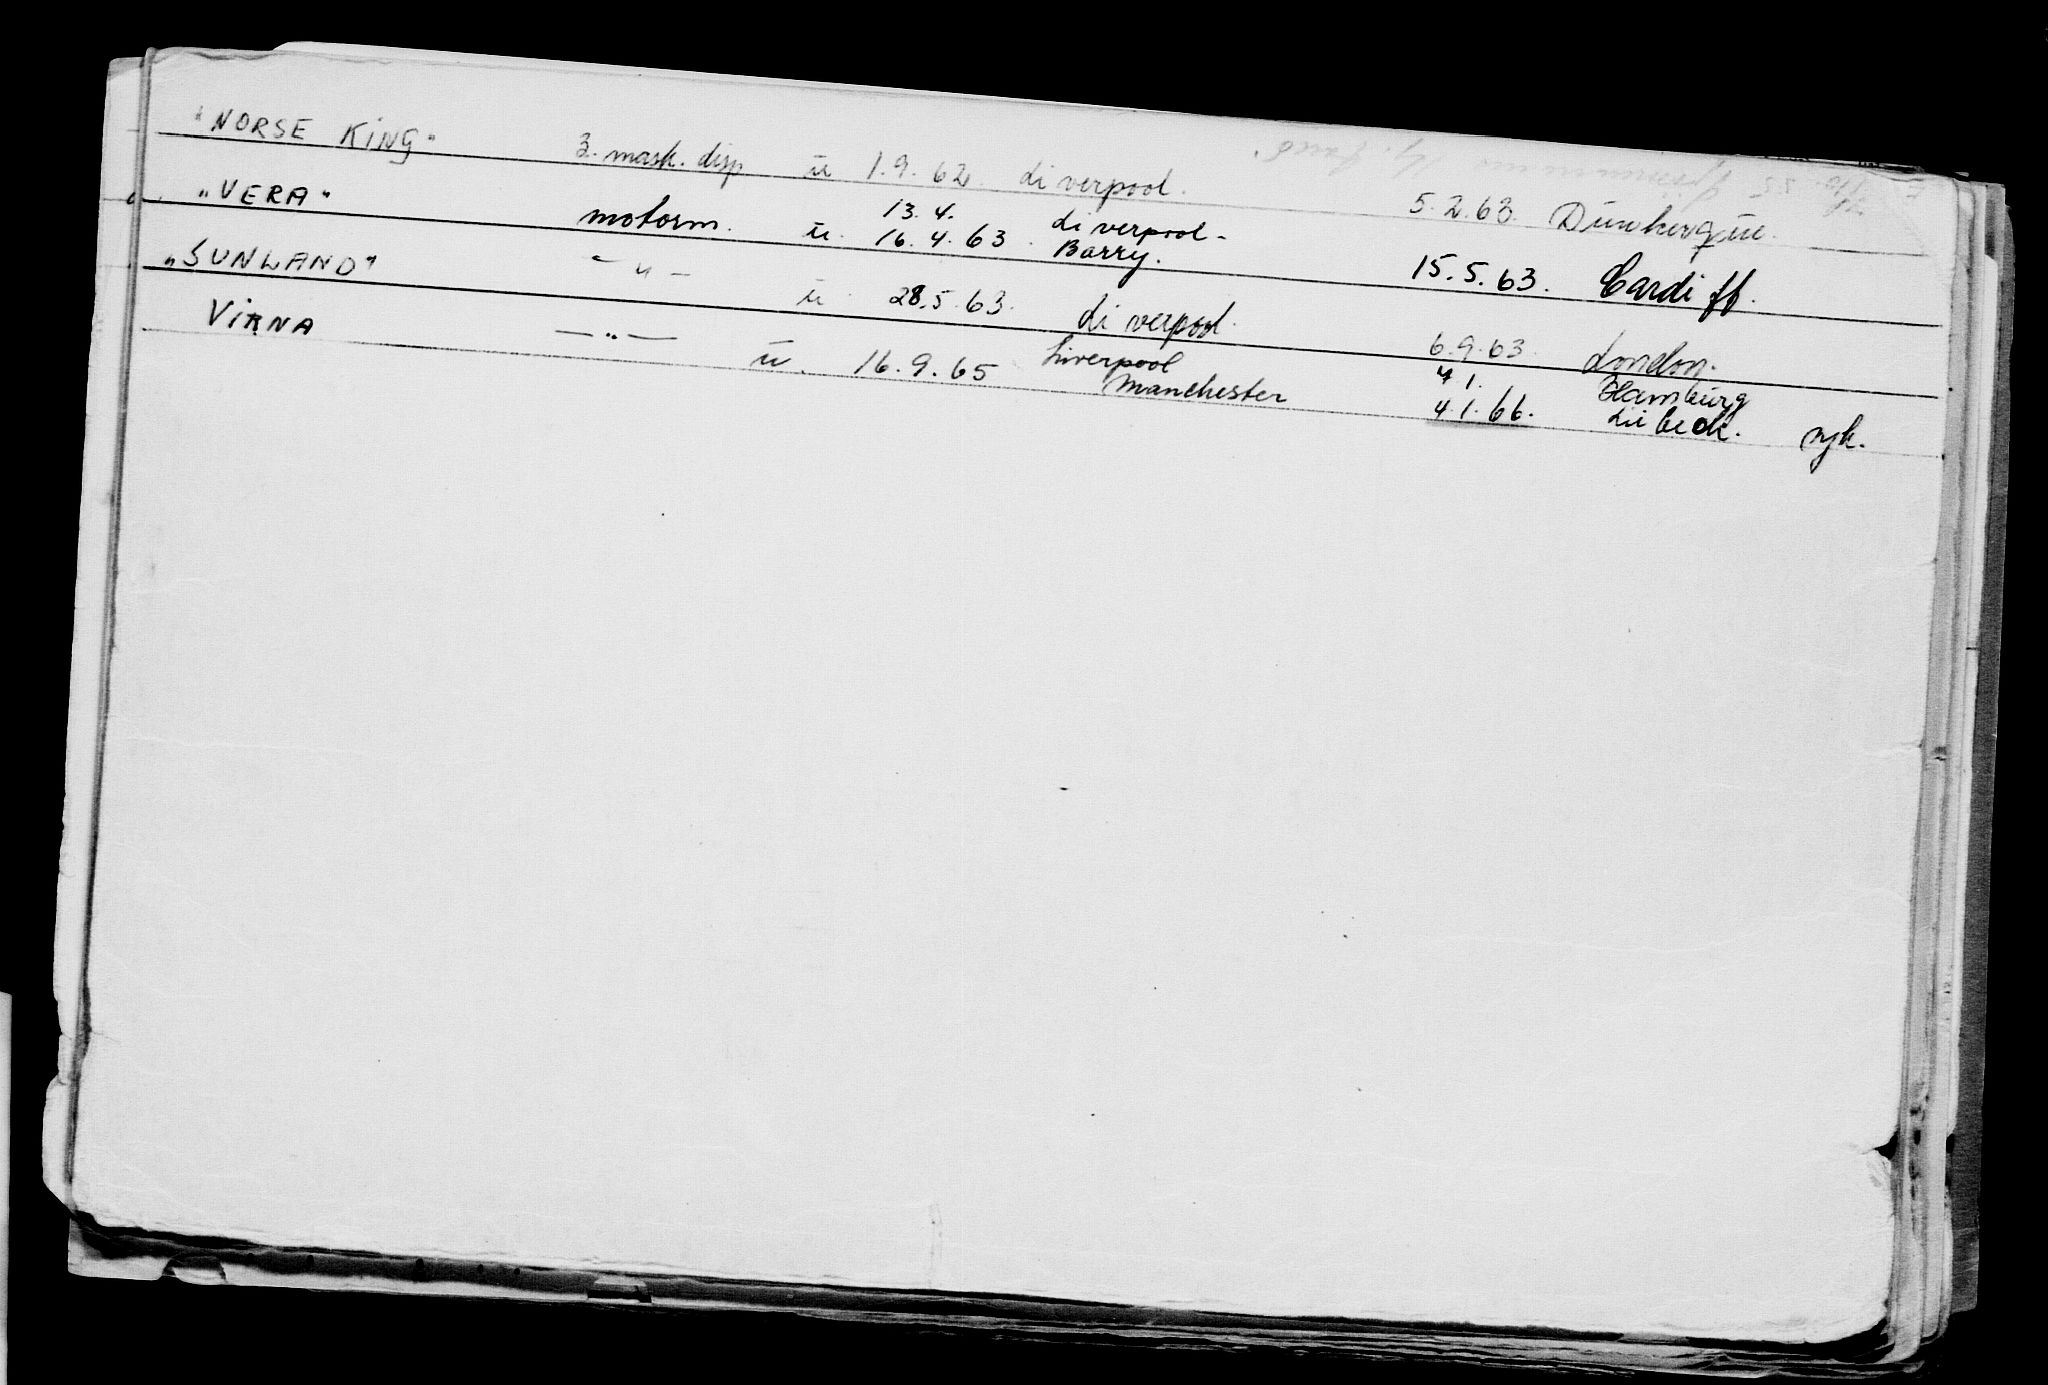 "NORSE KING" 3. mask. disp. u 1.9.62. Liverpool. 5.2.63. Dunkerque.
"VERA" motorm. u. 13.4. Liverpool - 
16.4.63. Barry. 15.5.63. Cardiff.
"SUNLAND" - " - u 28.5.63. Liverpool. 6.9.63. London.
VIRNA - " - u. 16.9.65 Liverpool 4 1. Hamburg
Manchester 4.1.66. Lübeck. syk.